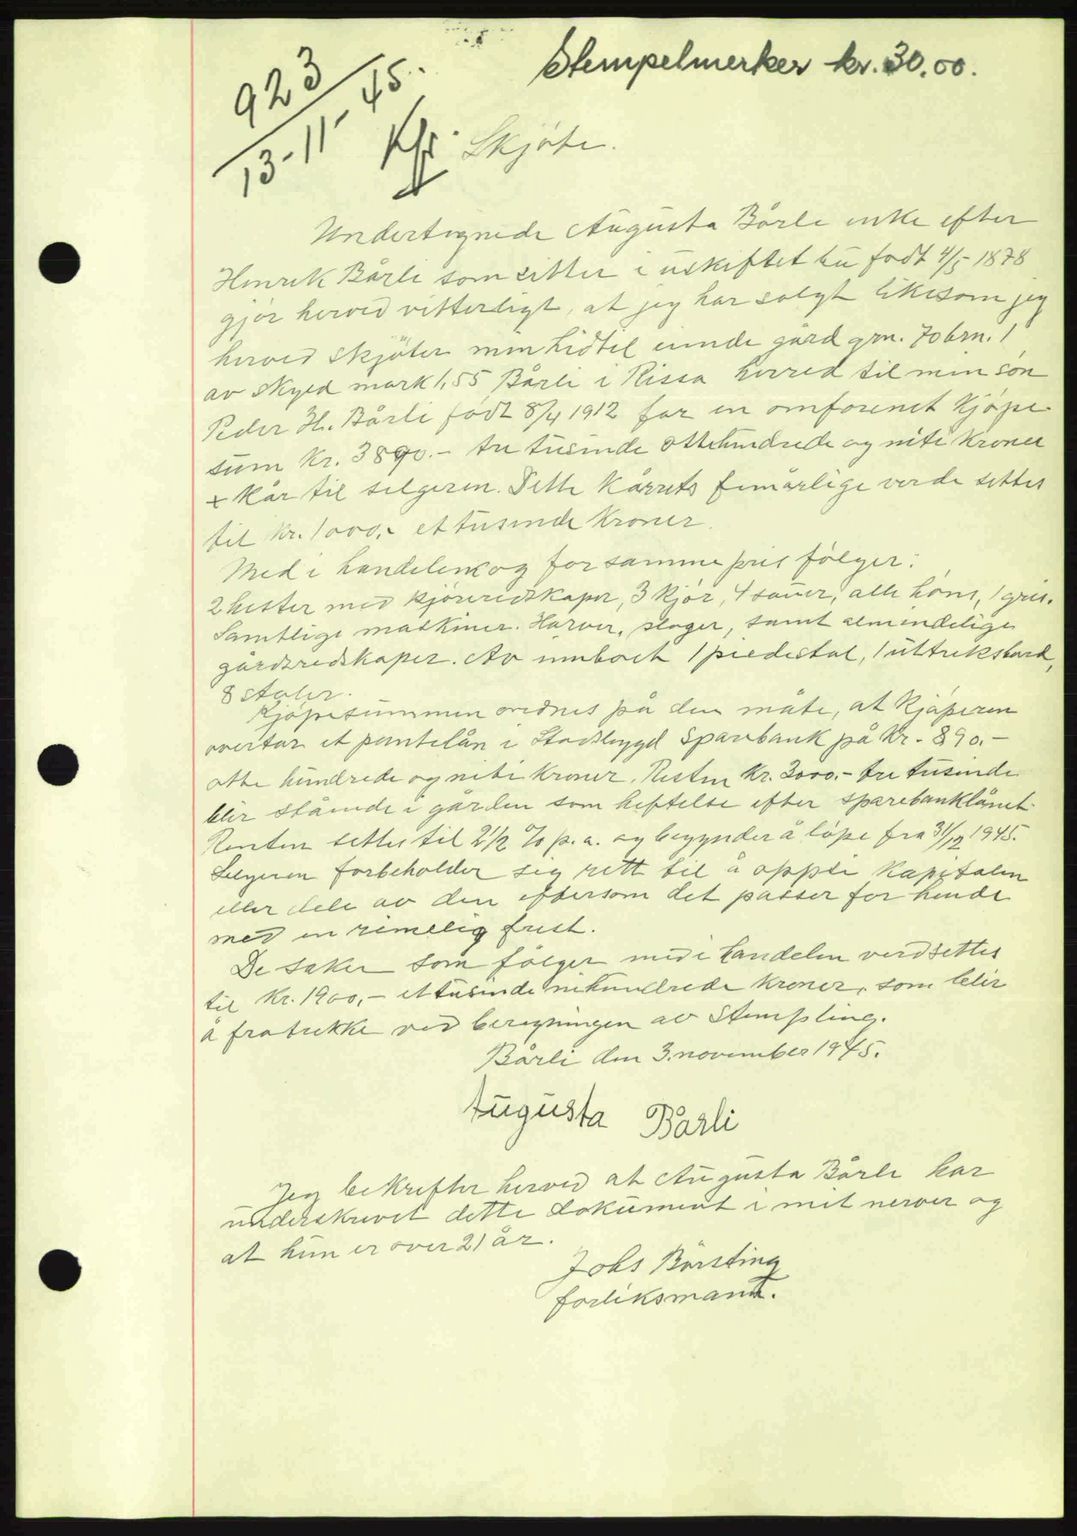 Stempelmerker kr. 30.00.
923
13-11-45.
Skjöte.
Undertegnede Augusta Bårli enke efter
Henrik Bårli som sitter i uskiftet bu født 4/5 1878
gjör herved vitterligt, at jeg har solgt likesom jeg
herved skjöter min hidtil eiende gård grn. 70 brn. 1
av skyld mark 1,55 Bårli i Rissa herred til min sön
Peder H. Bårli født 8/4 1912 for en omforenet kjöpe-
sum kr. 3890.- tre tusinde ottehundrede og niti kroner
+ kår til selgeren. Dette kårets femårlige verde settes
til kr. 1000,- et tusinde kroner.
Med i handelen og for samme pris fölger:
2 hester med kjöreredskaper, 3 kjör, 4 sauer, alle höns, 1 gris.
Samtlige maskiner. Harver, ploger, samt almindelige
gårdsredskaper. Av innboet 1 piedestal, 1 uttreksbord,
8 stoler.
Kjöpesummen ordnes på den måte, at kjöperen
overtar et pantelån i Stadsbygd Sparebank på kr. 890.-
otte hundrede og niti kroner. Resten kr. 3000.- tre tusinde
blir stående i gården som heftelse efter sparebanklånet.
Renten settes til 2 1/2 % p.a. og begynder å löpe fra 31/12 1945.
Selgeren forbeholder sig rett til å oppsi kapitalen
eller dele av den eftersom det passer for hende
med en rimelig frist.
De saker som fölger med i handelen verdsettes
til kr. 1900,- et tusinde nihundrede kroner, som blir
å fratrekke ved beregningen av stempling.
Bårli den 3. november 1945.
Augusta Bårli
Jeg bekrefter herved at Augusta Bårli har
underskrevet dette dokument i mit nerver og
at hun er over 21 år.
Johs Börsting
forliksmann.